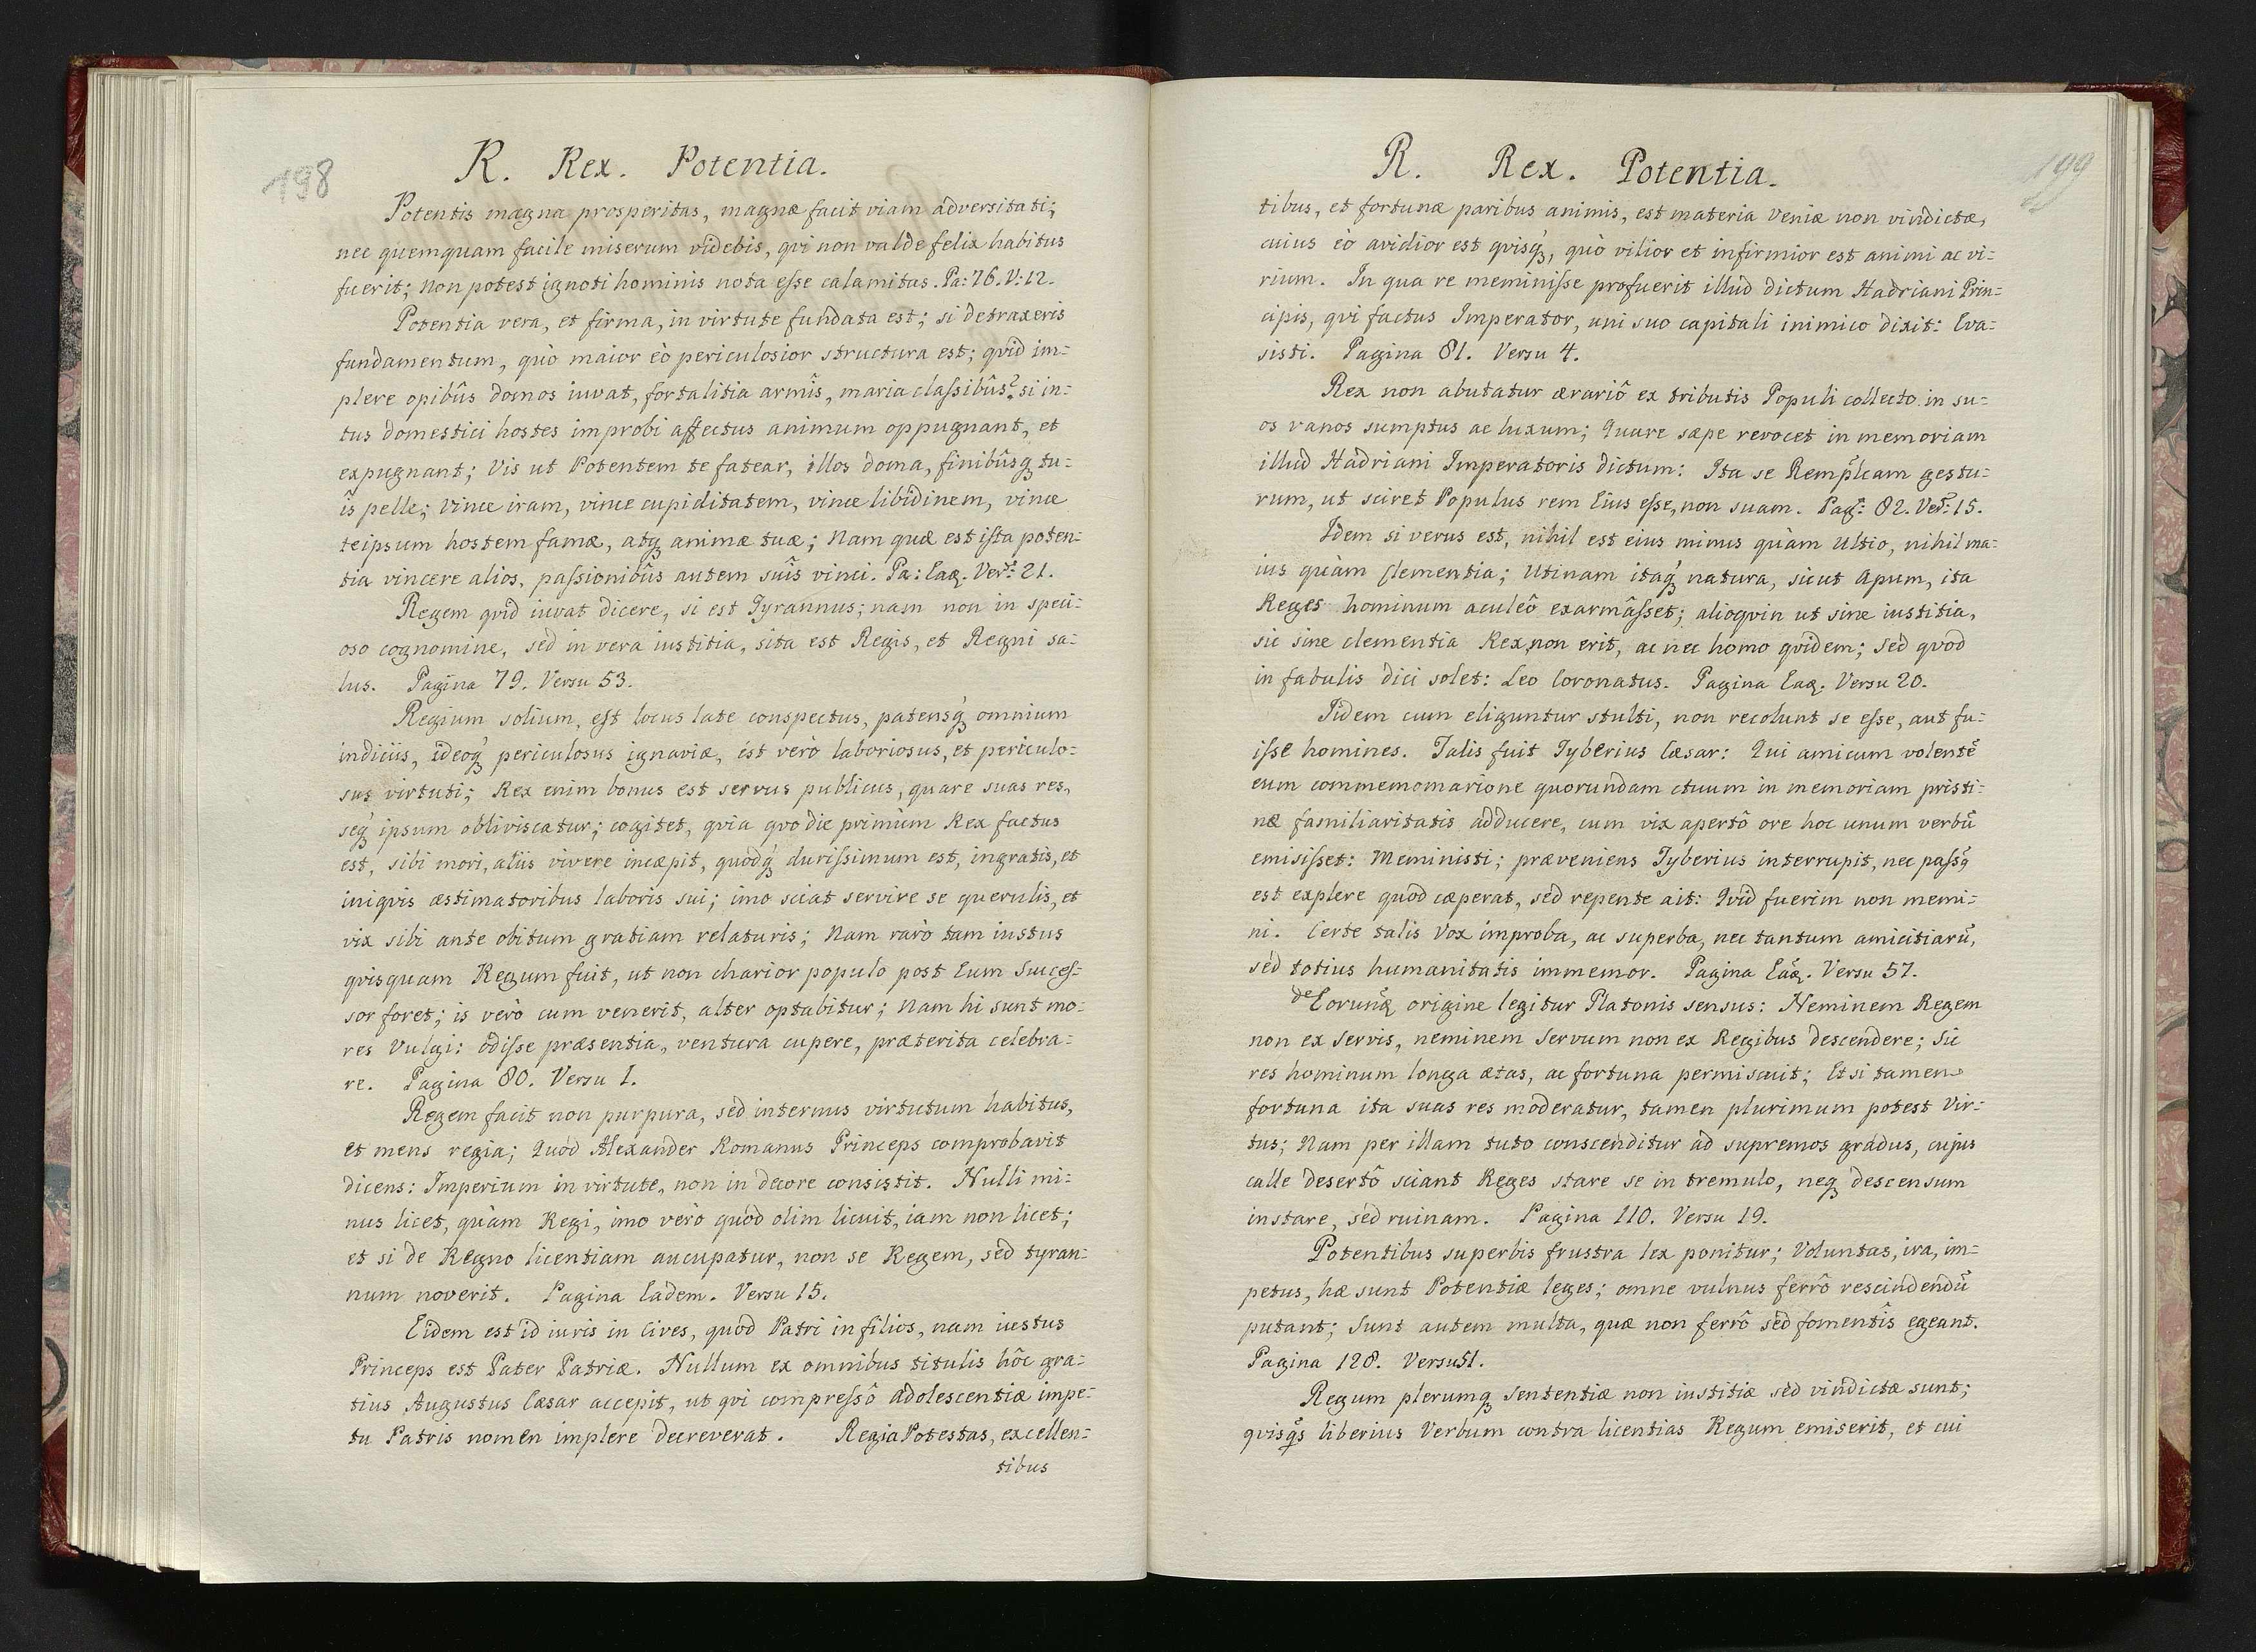 198
R. Rex. Potentia.
Potentis magna prosperitas, magnæ facit viam adversitati;
nec quemquam facile miserum videbis, qvi non valde felix habitus
fuerit; Non potest ignoti hominis nota eſse calamitas. Pa: 76. V: 12.
Potentia vera, et firma, in virtute fundata est; si detraxeris
fundamentum, quò maior eò periculosior structura est; qvid im=
plere opibûs domos iuvat, fortalitia armîs, maria claſsibûs? si in=
tus domestici hostes improbi affectus animum oppugnant, et
expugnant; Vis ut Potentem te fatear, illos doma, finibûsq́ꝫ tu=
îs pelle; vince iram, vince cupiditatem, vince libidinem, vince
teipsum hostem famæ, atqꝫ animæ tuæ; Nam quæ est iſta poten=
tia vincere alios, paſsionibûs autem suîs vinci. Pa: Eaꝫ. Verſ: 21.
Regem qvid iuvat dicere, si est Tyrannus; nam non in speci=
oso cognomine, sed in vera iustitia, sita est Regis, et Regni sa=
lus. Pagina 79. Versu 53.
Regium solium, eſt locus late conspectus, patensq́ꝫ omnium
indiciis, ideoq́ꝫ periculosus ignaviæ, ést verò laboriosus, et periculo=
sus virtuti; Rex enim bonus est servus publicus, quare suas res,
seq́ꝫ ipsum obliviscatur; cogitet, qvia qvo die primùm Rex factus
est, sibi mori, aliis vivere incæpit, quodq́ꝫ duriſsimum est, ingratis, et
iniqvis æstimatoribus laboris sui; imo sciat servire se querulis, et
vix sibi ante obitum gratiam relaturis; Nam rarò tam iustus
qvisquam Regum fuit, ut non charior populo post Eum Succeſ=
sor foret; is verò cum venerit, alter optabitur; Nam hi sunt mo=
res Vulgi: odiſse præsentia, ventura cupere, præterita celebra=
re. Pagina 80. Versu 1.
Regem facit non purpura, sed internus virtutum habitus,
et mens regia; Quod Alexander Romanus Princeps comprobavit
dicens: Imperium in virtute, non in decore consistit. Nulli mi=
nus licet, quàm Regi, imo verò quòd olim licuit, iam non licet;
et si de Regno licentiam aucupatur, non se Regem, sed tyran=
num noverit. Pagina Eadem. Versu 15.
Eidem est id iuris in Cives, quod Patri in filios, nam iustus
Princeps est Pater Patriæ. Nullum ex omnibus titulis hôc gra=
tius Augustus Cæsar accepit, ut qvi compreſsô adolescentiæ impe=
tu Patris nomen implere decreverat. Regia Potestas, excellen=
tibus
199
R. Rex. Potentia.
tibus, et fortunæ paribus animis, est materia Veniæ non vindictæ,
cuius eò avidior est qvisq́ꝫ, quò vilior et infirmior est animi ac vi=
rium. In qua re meminiſse profuerit illud dictum Hadriani Prin=
cipis, qvi factus Imperator, uni suo capitali inimico dixit: Eva=
sisti. Pagina 81. Versu 4.
Rex non abutatur ærariô ex tributis Populi collecto in su=
os vanos sumptus ac luxum; Quare sæpe revocet in memoriam
illud Hadriani Imperatoris dictum: Ita se Remp̃lcam gestu=
rum, ut sciret Populus rem Eius eſse, non suam. Pag: 82. Verſ: 15.
Idem si verus est, nihil est eius minus quàm Ultio, nihil ma=
ius quàm Clementia; Utinam itaq́ꝫ natura, sicut Apum, ita
Reges hominum aculeô exarmâſset; alioqvin ut sine iustitia,
sic sine clementia Rex, non erit, ac nec homo qvidem; sed qvod
in fabulis dici solet: Leo Coronatus. Pagina Eaꝫ. Versu 20.
Iidem cum eliguntur stulti, non recolunt se eſse, aut fu=
iſse homines. Talis fuit Tyberius Cæsar: Qui amicum volentẽ
eum commemomarione quorundam ctuum in memoriam pristi=
næ familiaritatis adducere, cum vix apertô ore hoc unum verbũ
emisiſset: Meministi; præveniens Tyberius interrupit, nec paſsꝰ
est explere quod cæperat, sed repente ait: Qvid fuerim non memi=
ni. Certe talis Vox improba, ac superba, nec tantum amicitiarũ,
sed totius humanitatis immemor. Pagina Eãꝫ. Versu 57.
de Eorunꝫ origine legitur Platonis sensus: Neminem Regem
non ex servis, neminem Servum non ex Regibus descendere; Sic
res hominum longa ætas, ac fortuna permiscuit; Etsi tamen
fortuna ita suas res moderatur, tamen plurimum potest Vir=
tus; Nam per illam tuto conscenditur ad supremos gradus, cujus
calle desertô sciant Reges stare se in tremulo, neqꝫ descensum
instare, sed ruinam. Pagina 110. Versu 19.
Potentibus superbis frustra lex ponitur; Voluntas, ira, im=
petus, hæ sunt Potentiæ leges; omne vulnus ferrô rescindendũ
putant; Sunt autem multa, quæ non ferrô sed fomentîs egeant.
Pagina 128. Versu 51.
Regum plerumqꝫ Sententiæ non iustitiæ sed vindictæ sunt;
qvisq́s liberius Verbum contra licentias Regum emiserit, et cui